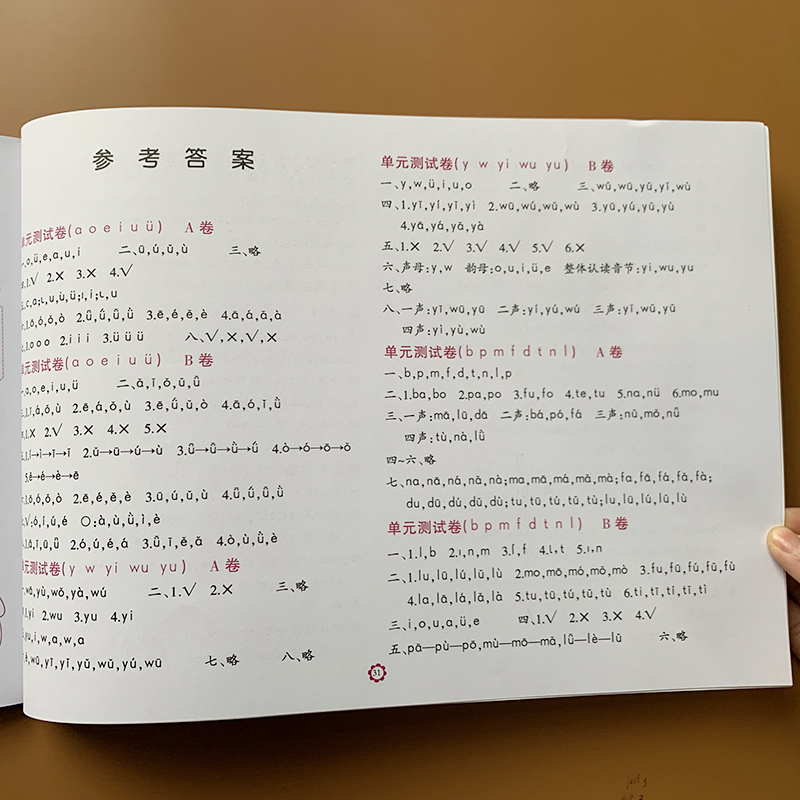 参考答案
单元测试卷(a o e i u ü) A 卷
一、o,ü,e,a,u,i 二、ū,ú,ǔ,ù 三、略
1.√ 2.× 3.× 4.√
1.ō,ó,ǒ,ò 2.ǖ,ǘ,ǚ,ǜ 3.ē,é,ě,è 4.ā,á,ǎ,à
1.o o o 2.i i i 3.ü ü ü 八、√,×,√,×
单元测试卷(a o e i u ü) B 卷
a,o,e,i,u,ü 二、ǎ,ǐ,ǒ,ǔ,ǚ
1.ī,á,ó,ù 2.ē,á,ǒ,ù 3.ē,ǘ,ǔ,ò 4.ā,ó,ǐ,ǜ
1.× 2.√ 3.× 4.× 5.×
5.ě→é→è→ē
1.ō,ó,ǒ,ò 2.ē,é,ě,è 3.ū,ú,ǔ,ù 4.ǖ,ǘ,ǚ,ǜ
√:ó,í,ú,é ○:à,ù,ǜ,ì,è
2.ó,ú,é,á 3.ǚ,ǐ,ě,ǎ 4.ò,ù,ǜ,è
单元测试卷(y w yi wu yu) A 卷
wā,yù,wǒ,yà,wú 二、1.√ 2.× 三、略
1.yi 2.wu 3.yu 4.yi
yu,i,w,a,w,a
wū,yī,yǐ,yǔ,wǔ,yú,wū 七、略 八、略
单元测试卷(y w yi wu yu) B 卷
一、y,w,ü,i,u,o 二、略 三、wǔ,wū,yǔ,yǐ,wù
四、1.yī,yí,yǐ,yì 2.wū,wú,wǔ,wù 3.yū,yú,yǔ,yù
4.yā,yá,yǎ,yà
五、1.× 2.√ 3.√ 4.√ 5.√ 6.×
六、声母:y,w 韵母:o,u,i,ü,e 整体认读音节:yi,wu,yu
七、略
八、一声:yī,wū,yū 二声:yí,yú,wú 三声:yǐ,wǔ,yǔ
四声:yì,yù,wù
单元测试卷(b p m f d t n l) A 卷
一、b,p,m,f,d,t,n,l,p
二、1.ba,bo 2.pa,po 3.fu,fo 4.te,tu 5.na,nü 6.mo,mu
三、一声:mā,lū,dā 二声:bá,pó,fá 三声:nǔ,mǒ,nǚ
四声:tù,nà,lǜ
四~六、略
七、na,nā,ná,nǎ,nà;ma,mā,má,mǎ,mà;fa,fā,fá,fǎ,fà;
du,dū,dú,dǔ,dù;tu,tū,tú,tǔ,tù;lu,lū,lú,lǔ,lù
单元测试卷(b p m f d t n l) B 卷
一、1.l,b 2.ı,n,m 3.ſ,f 4.l,t 5.ı,n
二、1.lu,lū,lú,lǔ,lù 2.mo,mō,mó,mǒ,mò 3.fu,fū,fú,fǔ,fù
4.la,lā,lá,lǎ,là 5.tu,tū,tú,tǔ,tù 6.ti,tī,tí,tǐ,tì
三、i,o,u,a,ü,e 四、1.√ 2.× 3.× 4.√
五、pā—pù—pō,mù—mō—mā,lǜ—lè—lǔ 六、略
31